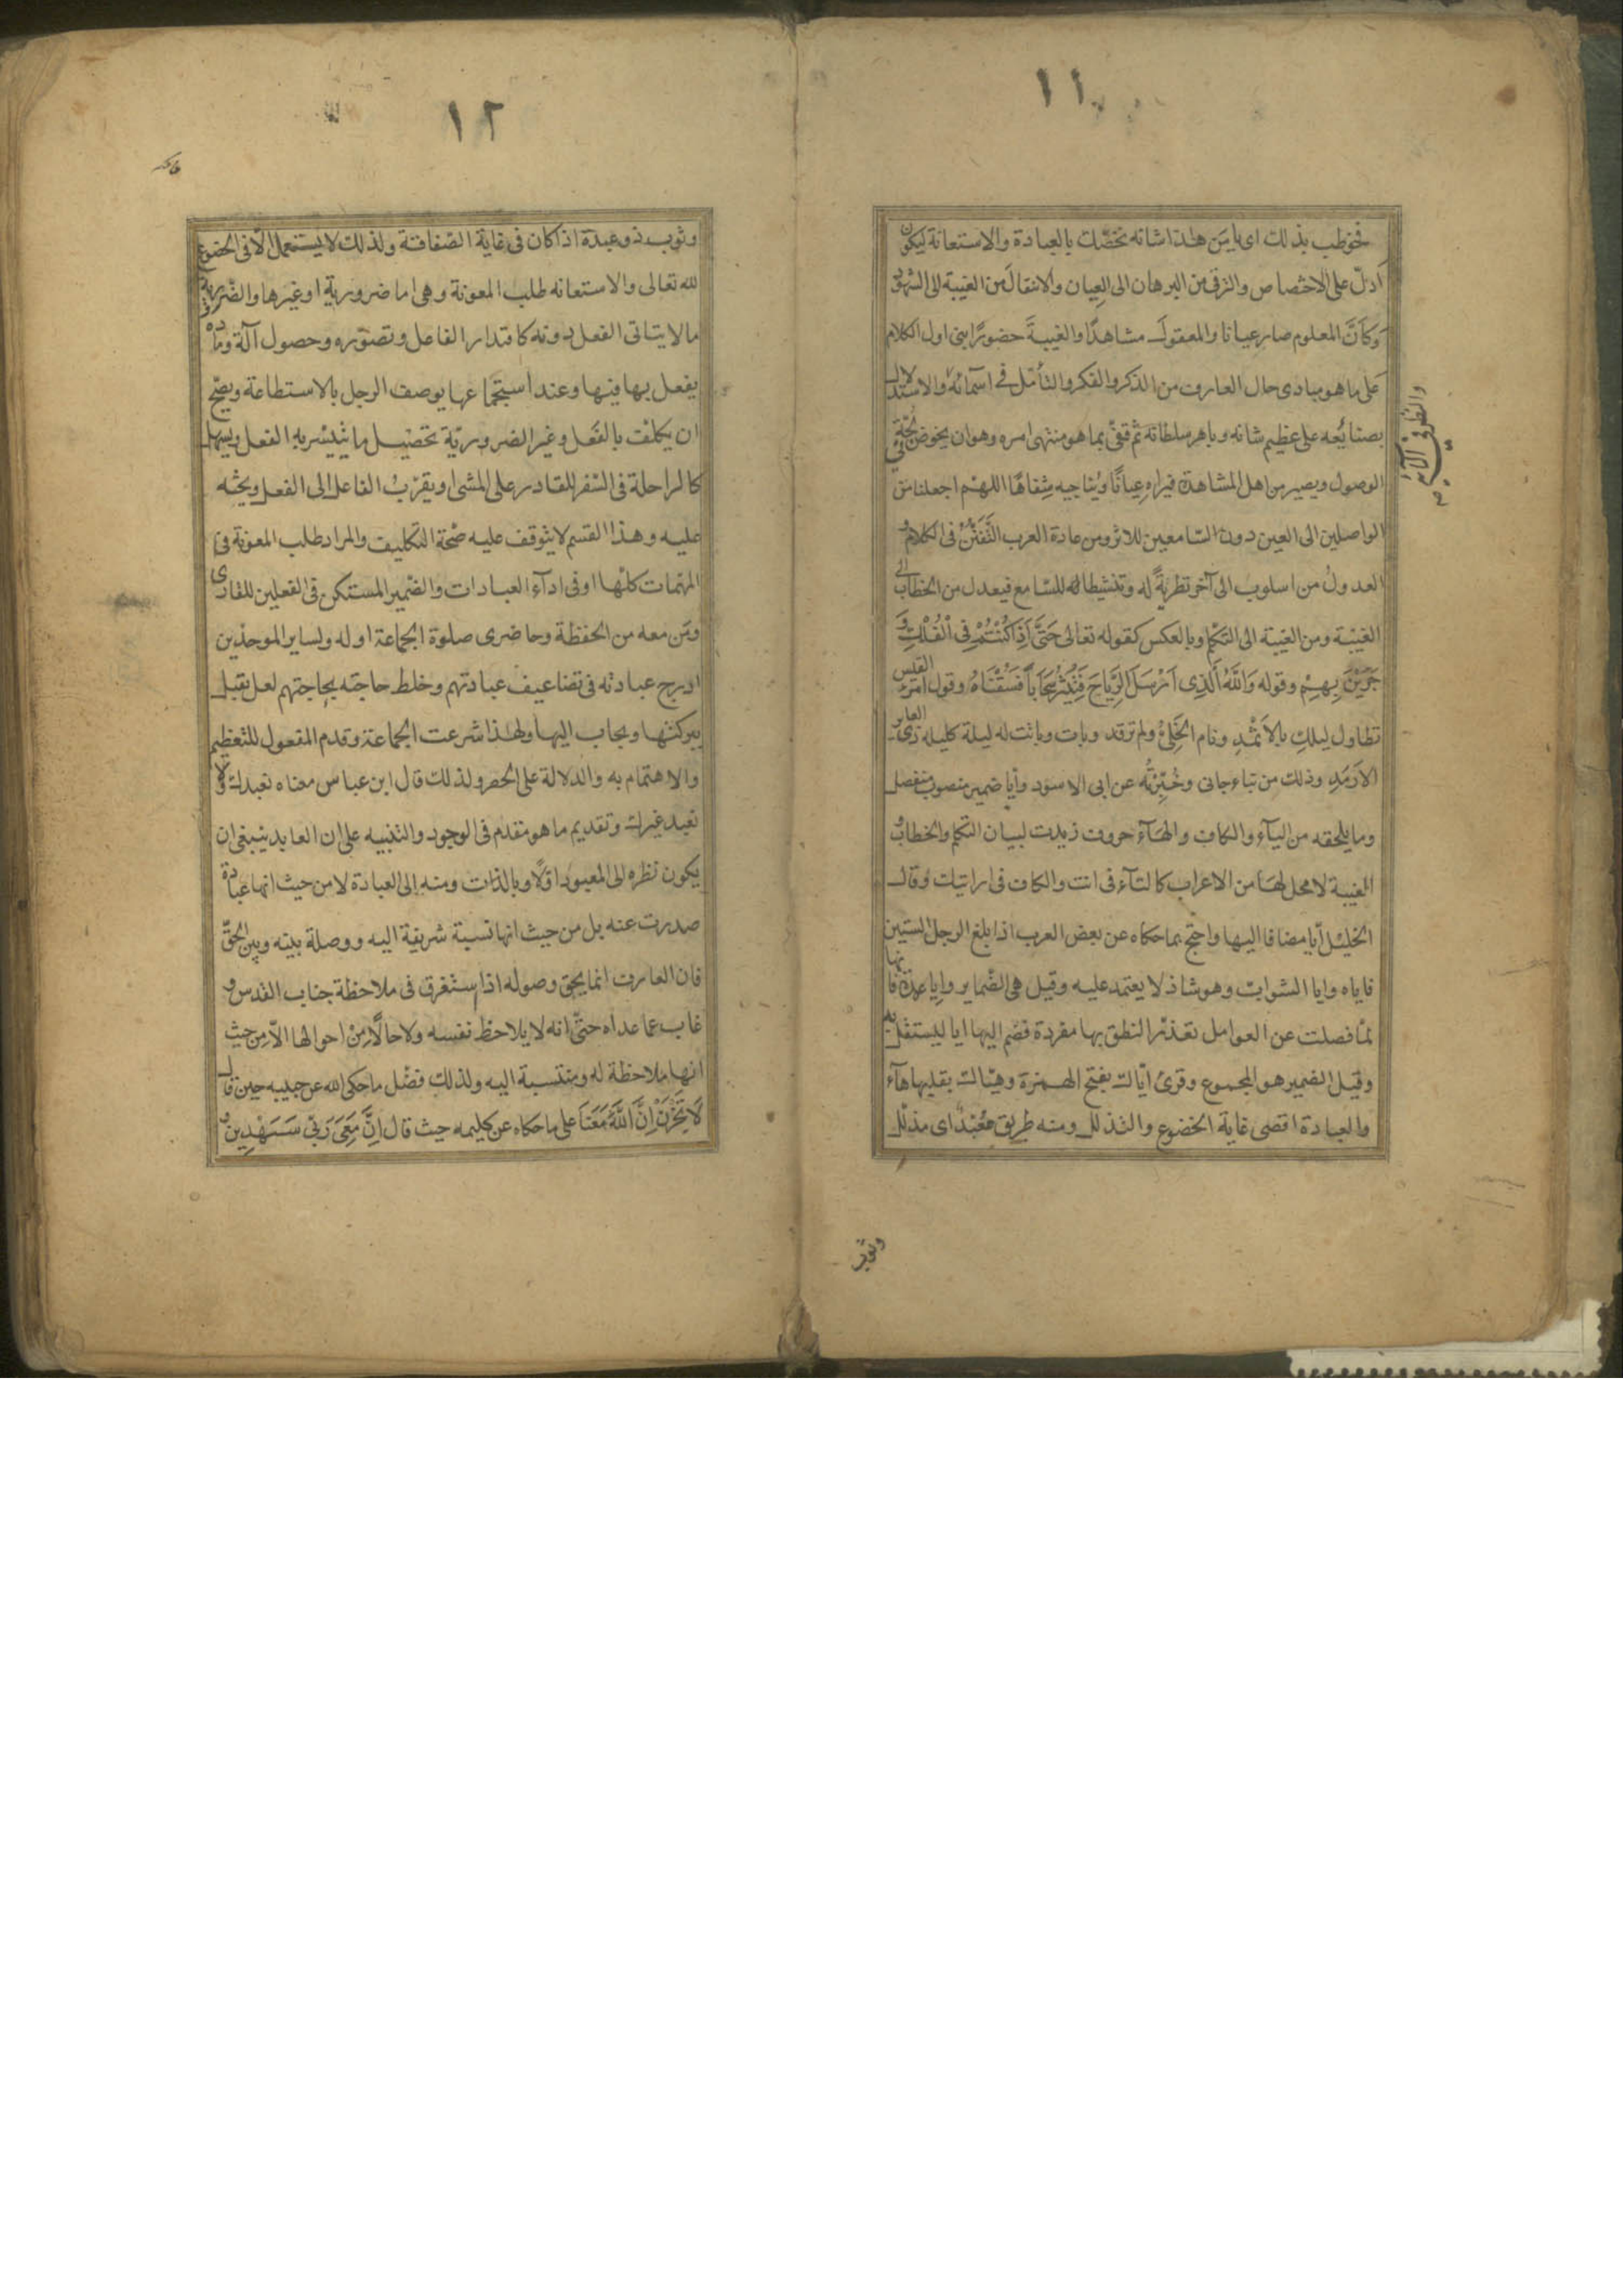 ١١
فخوطب بذلك اى يا من هذا شانه نخصّك بالعبادة والاستعانة ليكون
ادلّ على الاختصاص والترقى من البرهان الى العيان والانتقال من الغيبة الى الشهود
وكأنّ المعلوم صار عيانا والمعقول مشاهدًا والغيبةَ حضورًا بنى اول الكلام
على ما هو مبادى حال العارف من الذكر والفكر والتأمّل فى اسمائه والاستدلال
بصنايعه على عظيم شانه وباهر سلطانه ثم قفّى بما هو منتهى امره وهو ان يخوض لجّة
الوصول ويصير من اهل المشاهدة فيراه عيانًا ويناجيه شفاهًا اللهم اجعلنا من
الواصلين الى العين دون السّامعين للاثر ومن عادة العرب التَّفَنُّنُ فى الكلام و
العدولُ من اسلوب الى آخر تطريةً له وتنشيطا للسّامع فيعدل من الخطاب الى
الغيبة ومن الغيبة الى التكلم وبالعكس كقوله تعالى حَتَّى اِذَا كُنْتُمْ فِى الْفُلْكِ وَ
جَرَيْنَ بِهِمْ وقوله وَاللَّهُ الَّذِى اَرْسَلَ الرِّيَاحَ فَتُثِيرُ سَحَابًا فَسُقْنَاهُ وقول امرء القيس
تطاول ليلك بالاَثْمُدِ ونام الخَلِىُّ ولم ترقد وبات وباتت له ليلة كليله ذى العاير
الارمَدِ وذلك من نباء جانى وخُبِّرْتُه عن ابى الاسود وأيا ضمير منصوب منفصل
وما يلحقه من اليآء والكاف والهآء حروف زيدت لبيان التكلم والخطاب و
الغيبة لا محل لها من الاعراب كالتآء فى انت والكاف فى ارايتك وقال
الخليل أيا مضافا اليها واحتج بما حكاه عن بعض العرب اذا بلغ الرجل الستين
فاياه وايا الشواب وهو شاذ لا يعتمد عليه وقيل هى الضماير وايا عمدة فانها
لمّا فصلت عن العوامل تعذّر النطق بها مفردة فضم اليها ايا ليستقل به
وقيل الضمير هو المجموع وقرئ ايّاك بفتح الهمزة وهيّاك بقلبها هآء
والعبادة اقصى غاية الخضوع والتذلل ومنه طريق معبّد اى مذلّل
والنظر فى الآئه
صح
وثوب
١٢
وثوب ذو عبدة اذا كان فى غاية الصّفاقة ولذلك لا يستعمل الّا فى الخضوع
لله تعالى والاستعانه طلب المعونة وهى اما ضرورية او غيرها والضّرورية
ما لا يتاتى الفعل دونه كاقتدار الفاعل وتصوّره وحصول آلة ومادة
يفعل بها فيها وعند استجماعها يوصف الرجل بالاستطاعة ويصحّ
ان يكلّف بالفعل وغير الضروريّة تحصيل ما يتيسّر به الفعل ويسهل
كالراحلة فى السّفر للقادر على المشى او يقرّبُ الفاعل الى الفعل ويحثّه
عليه وهذا القسم لا يتوقف عليه صّحة التكليف والمراد طلب المعونة فى
المهّمات كلّها او فى ادآء العبادات والضّمير المستكن فى الفعلين للقارى
ومَن معه من الحفظة وحاضرى صلوة الجماعة او له ولساير الموحدين
ادرج عبادته فى تضاعيف عبادتهم وخلط حاجته بحاجتهم لعل تقبل
ببركتها ويجاب اليها ولهذا شرعت الجماعة وقدم المفعول للتعظيم
والاهتمام به والدلالة على الحصر ولذلك قال ابن عباس معناه نعبدك ولا
نعبد غيرك وتقديم ما هو مقدم فى الوجود والتنبيه على ان العابد ينبغى ان
يكون نظره الى المعبود اوّلًا وبالذات ومنه الى العبادة لا من حيث انها عبادة
صدرت عنه بل من حيث انها نسبة شريفة اليه ووصلة بينه وبين الحقّ
فان العارف انما يحق وصوله اذا استغرق فى ملاحظة جناب القدس و
غاب عما عداه حتّى انه لا يلاحظ نفسه ولا حالًا من احوالها الاّ من حيث
انها ملاحظة له ومنتسبة اليه ولذلك فضّل ما حكى الله عن حبيبه حين قال
لَا تَحْزَنْ اِنَّ اللَّهَ مَعَنَا على ما حكاه عن كليمه حيث قال اِنَّ مَعِىَ رَبِّى سَيَهْدِينِ و